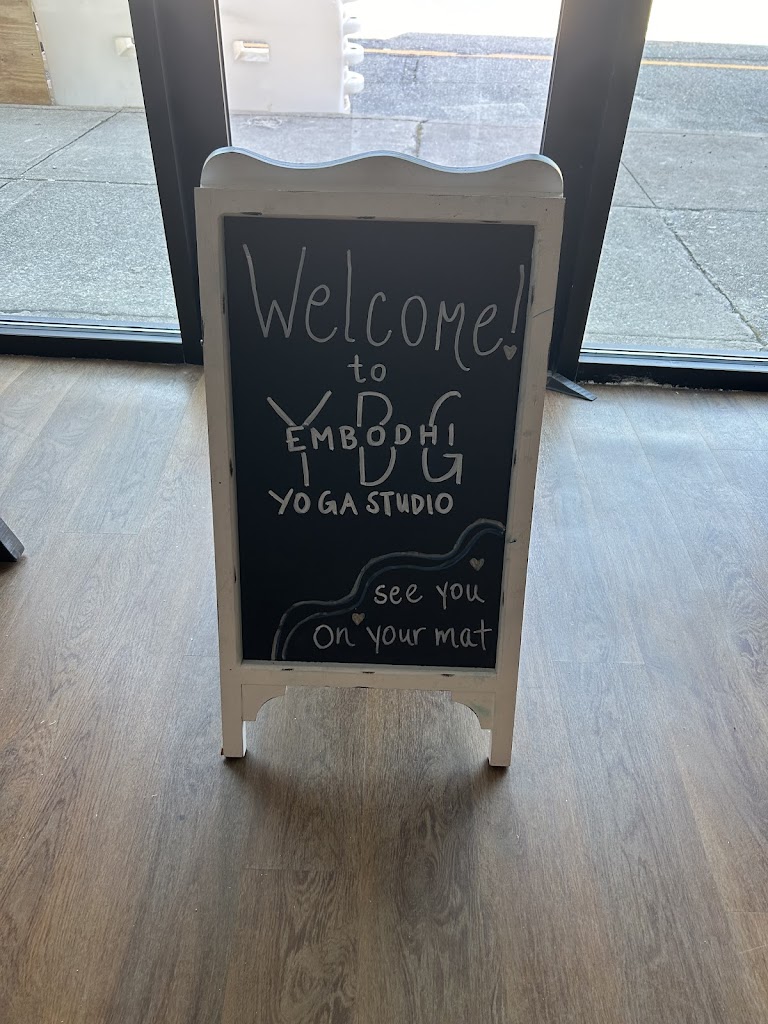 Welcome!
to
YBG
EMBODHI
YOGA STUDIO
see you
on your mat